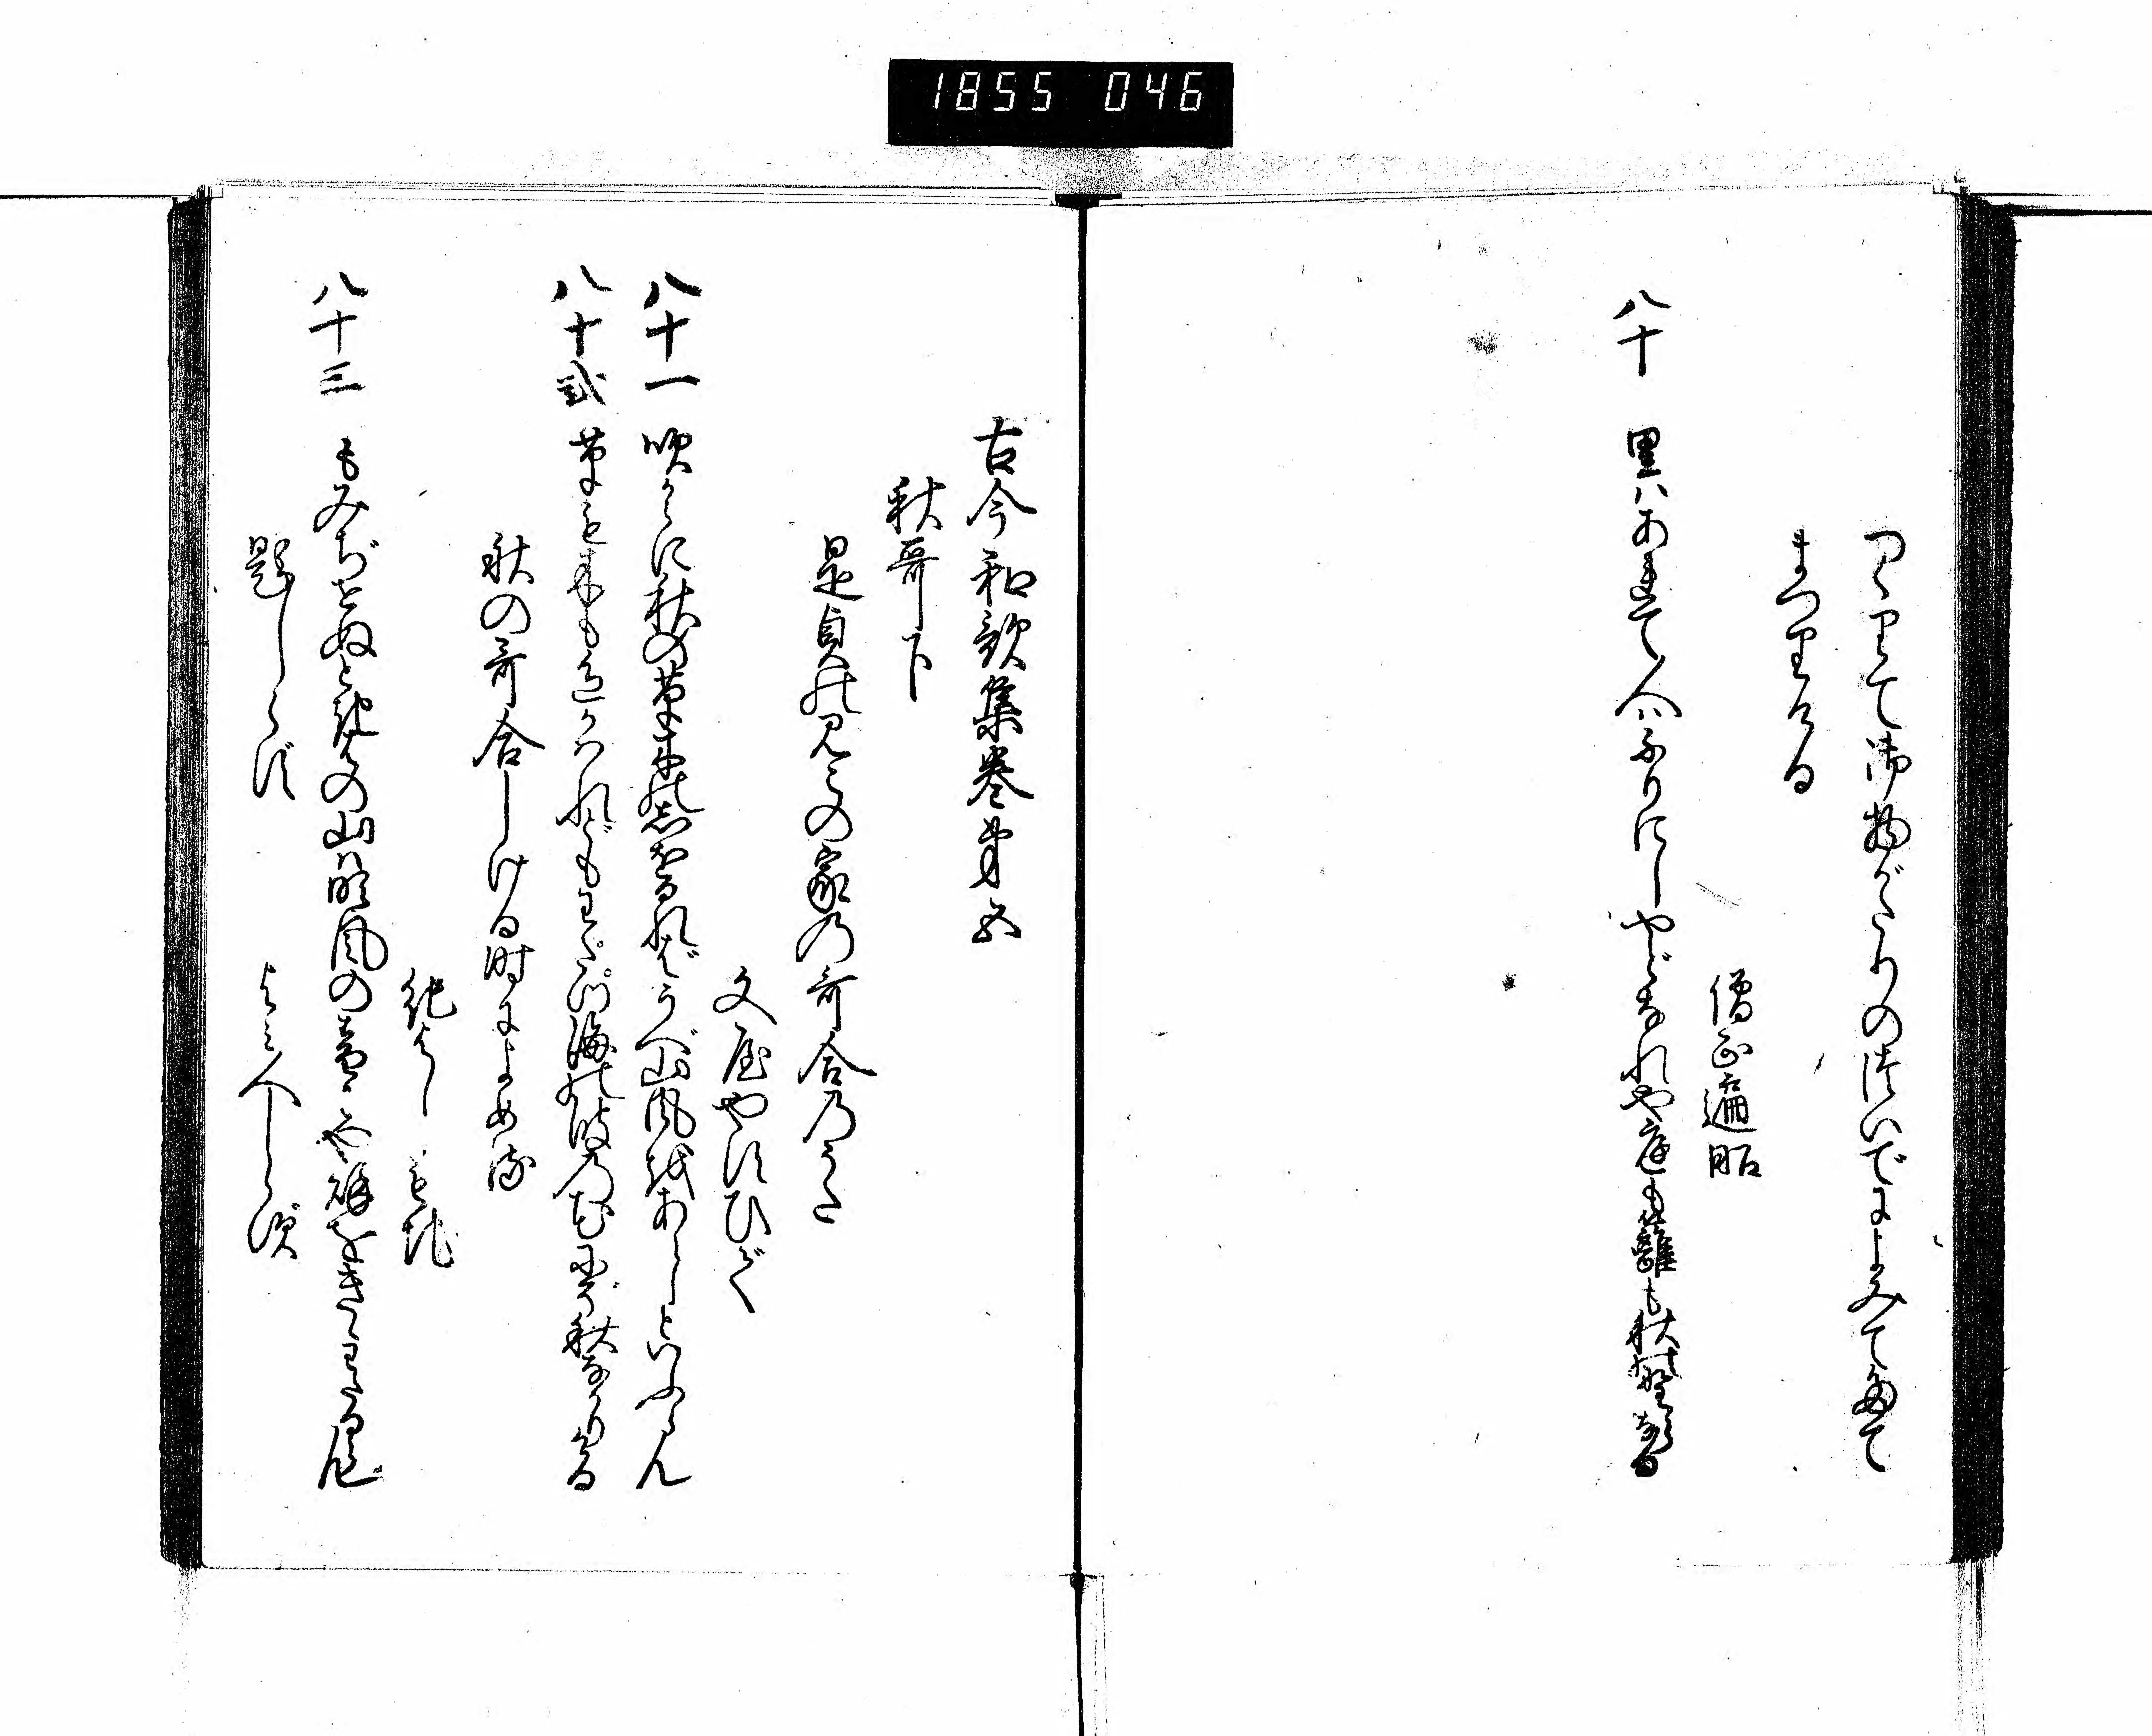 1855 046
つくりて御物がたりのついでによみて奉て
まつりける
僧正遍昭
八十 里はあれて人はふりにしやどなれや庭も籬も秋の野らなる
古今和歌集巻第五
秋哥下
是貞のみこの家乃哥合乃うた
文屋やすひで
八十一 吹からに秋の草木のしほるればうべ山風をあらしといふらん
八十弐 草も木も色かはれどもわたつ海の波の花にぞ秋なかりける
秋の哥合しける時によめる
紀よしもち
八十三 もみぢせぬときはの山は吹風の音にや秋をきゝわたるらん
題しらず よみ人しらず